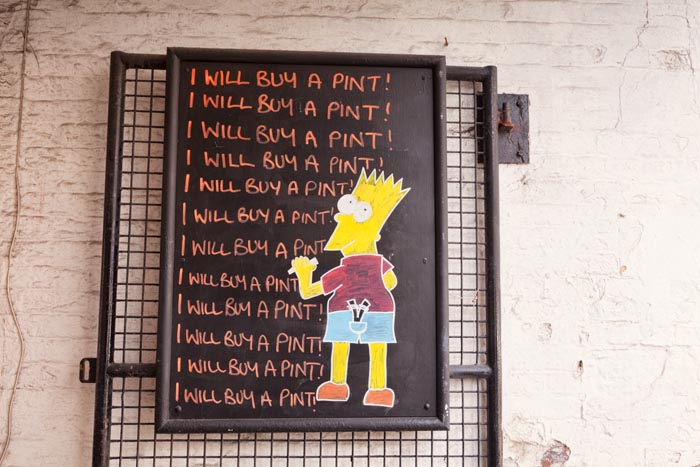 I WILL BUY A PINT!
I WILL BUY A PINT!
I WILL BUY A PINT!
I WILL BUY A PINT!
I WILL BUY A PINT!
I WILL BUY A PINT!
I WILL BUY A PINT
I WILL BUY A PINT
I WILL BUY A PINT!
I WILL BUY A PINT!
I WILL BUY A PINT!
I WILL BUY A PINT!